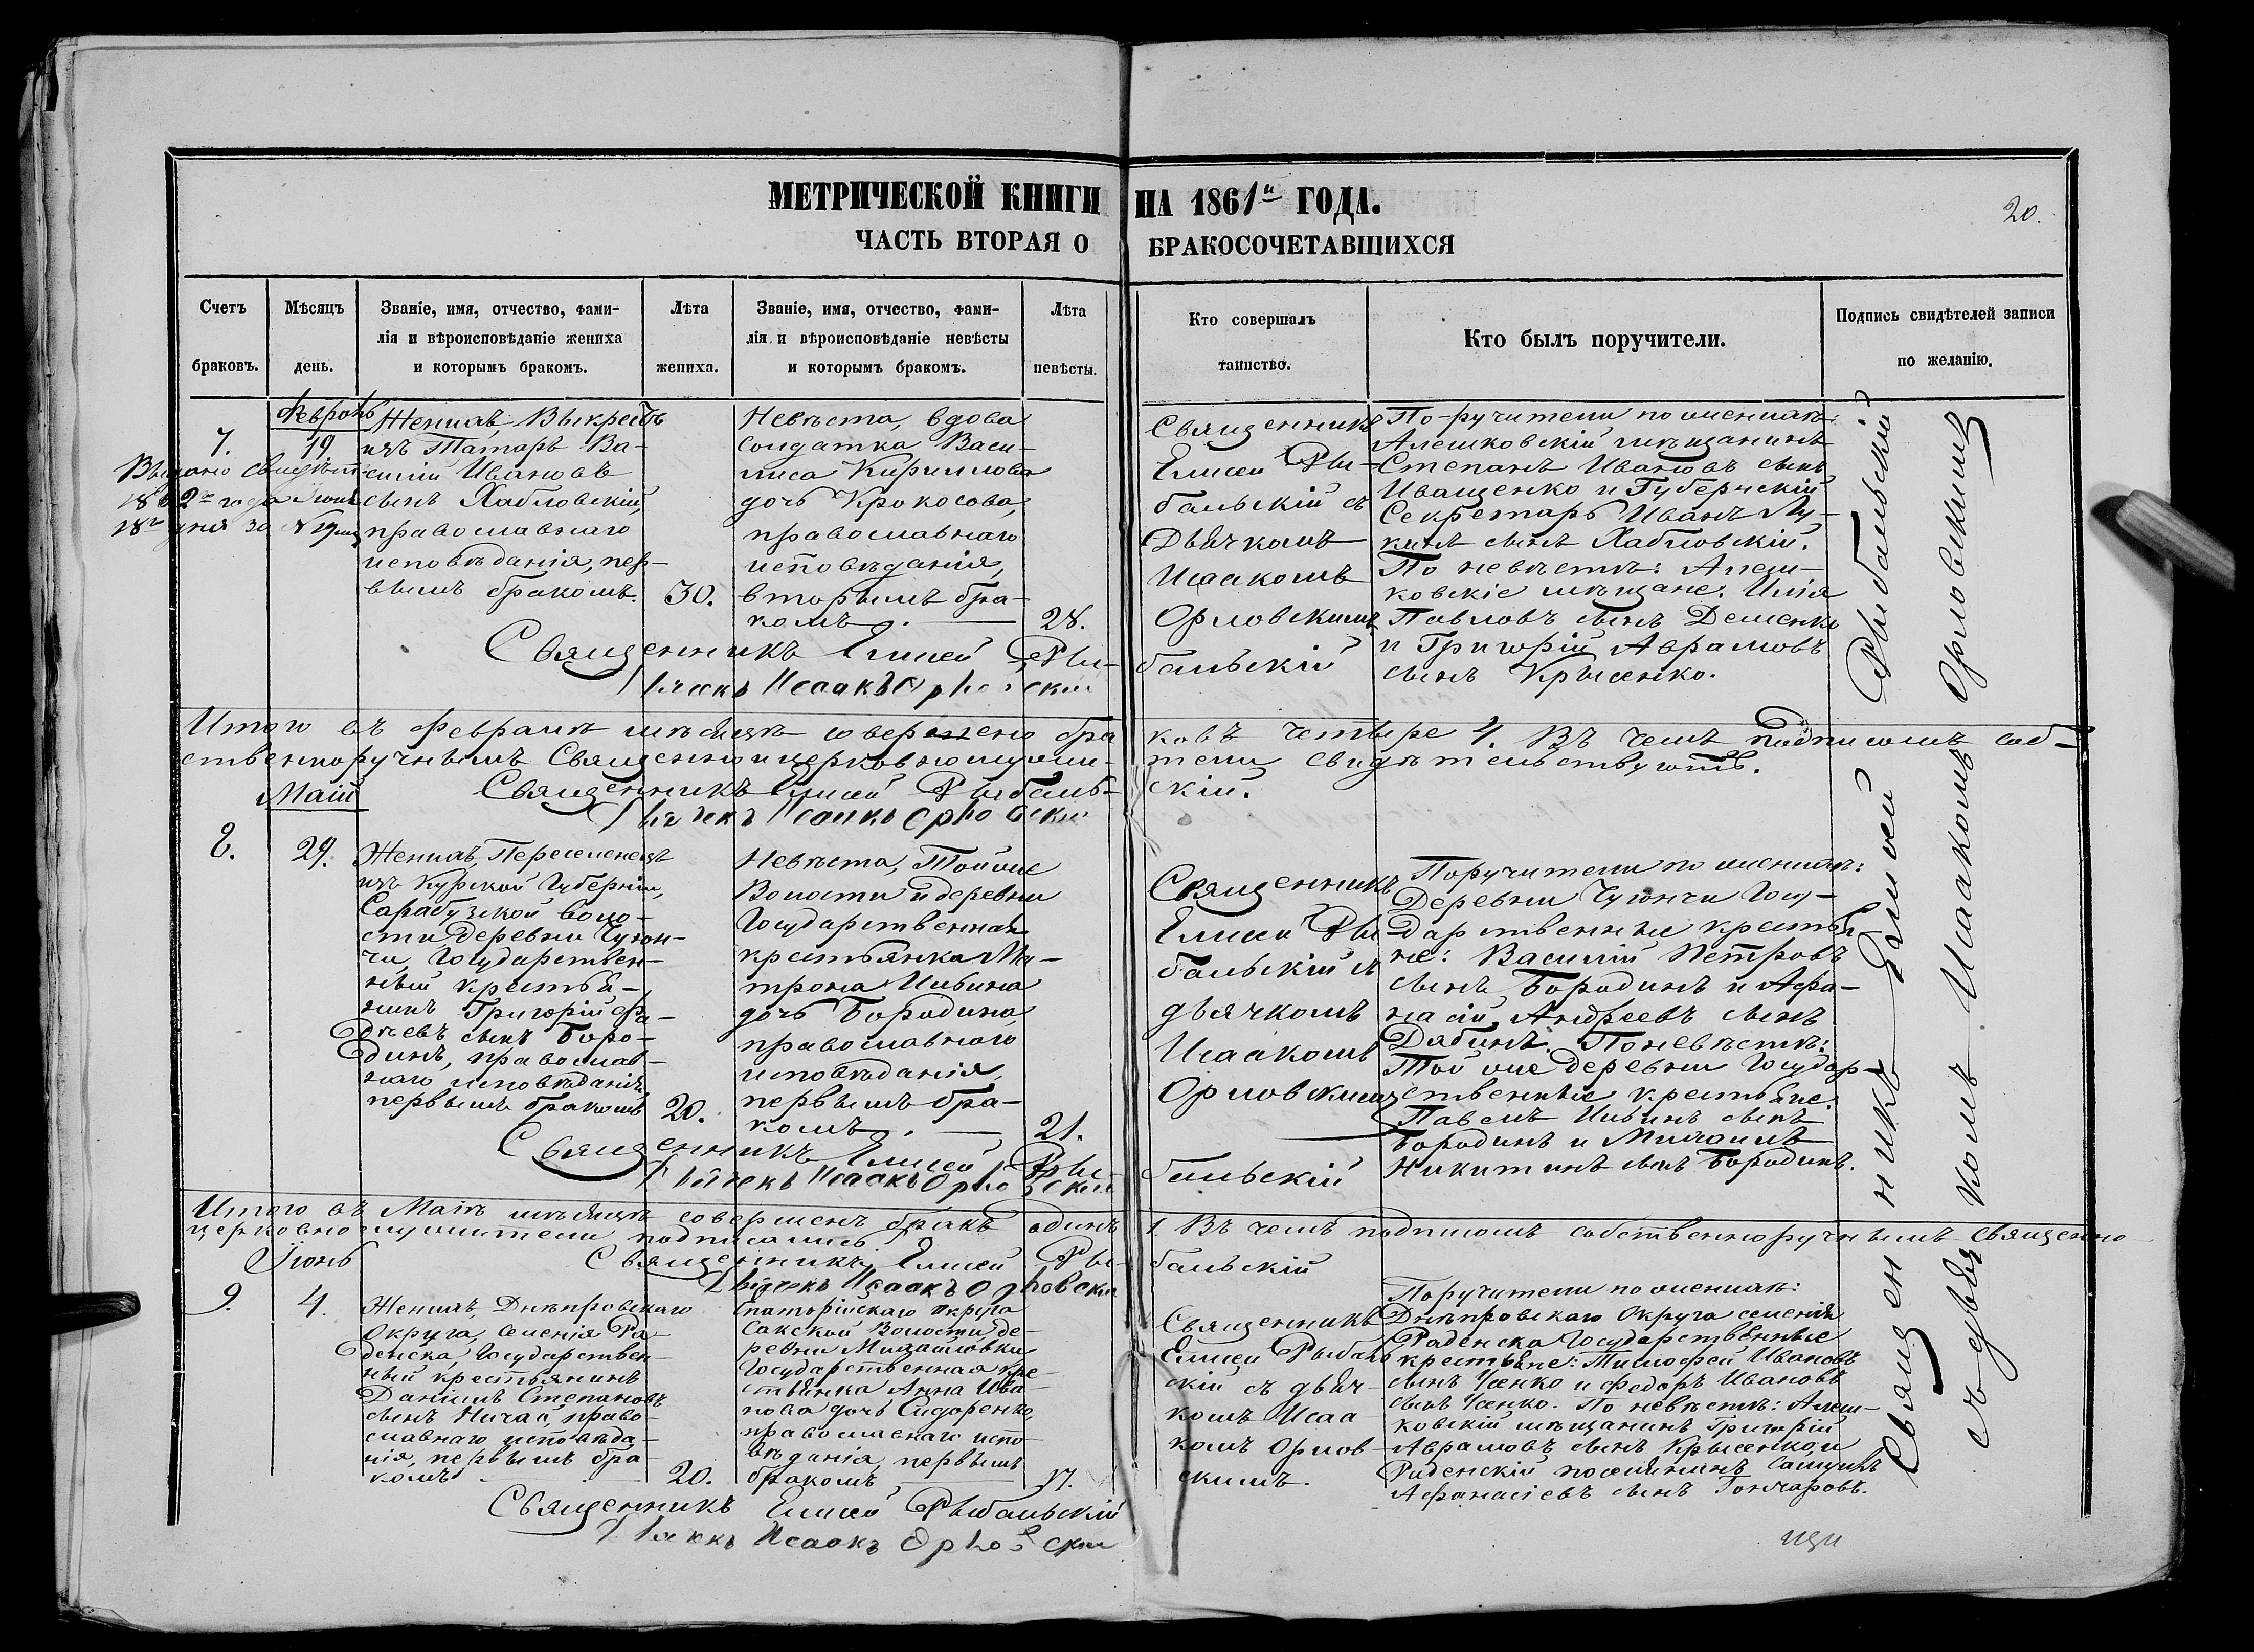 МЕТРИЧЕСКОЙ КНИГИ НА 1861й ГОДА.
20.
ЧАСТЬ ВТОРАЯ О БРАКОСОЧЕТАВШИХСЯ
Счетъ браковъ.
Мѣсяцъ день.
Званіе, имя, отчество, фами-
лія и вѣроисповѣданіе жениха
и которымъ бракомъ.
Лѣта жениха.
Званіе, имя, отчество, фами-
лія и вѣроисповѣданіе невѣсты
и которымъ бракомъ.
Лѣта невѣсты.
Кто совершалъ
таинство.
Кто былъ поручители.
Подпись свидѣтелей записи
по желанію.
7.
19
Женихъ, Выкрестъ
изъ Татаръ Ва-
силій Ивановъ
сынъ Хабловскій,
православнаго
исповѣданія, пер-
вымъ бракомъ.
30.
Невѣста, вдова
солдатка Васи-
лиса Кириллова
дочь Крокосова,
православнаго
исповѣданія,
вторымъ бра-
комъ.
28.
Священникъ
Елисей Ры-
бальскій съ
Дьячкомъ
Исаакомъ
Орловскимъ
По-ручители по женихѣ:
Алешковскій мѣщанинъ
Степанъ Ивановъ сынъ
Иващенко и Губернскій
Секретарь Иванъ Лу-
кинъ сынъ Хабловскій.
По невѣстѣ: Алеш-
ковскіе мѣщане: Илія
Павловъ сынъ Деменко
и Григорій Аврамовъ
сынъ Крысенко.
Священникъ Елисей Рыбальскій
Дьячекъ Исаакъ Орловскій
Итого въ Февралѣ мѣсяцѣ совершено браковъ четыре 4. Въ чемъ подписомъ соб-
ственноручнымъ Священноицерковнослужители свидѣтельствуютъ.
Маій
Священникъ Елисей Рыбальскій.
Дьячекъ Исаакъ Орловскій
8.
29.
Женихъ, Переселенецъ
изъ Курской Губерніи,
Сарабузской воло-
сти, деревни Чуюн-
чи, Государствен-
ный крестья-
нинъ Григорій Фа-
дѣевъ сынъ Боро-
динъ, православ-
наго исповѣданія
первымъ бракомъ
20.
Невѣста, Тойже
Волости и деревни
Государственная
крестьянка Ма-
трона Ильина
дочь Бородина,
православнаго
исповѣданія,
первымъ бра-
комъ.
21.
Священникъ
Елисей Ры-
бальскій съ
дьячкомъ
Исаакомъ
Орловскимъ
Поручители по женихѣ:
Деревни Чуюнчи Госу-
дарственные крестья-
не: Василій Петровъ
сынъ Бородинъ и Афа-
насій Андреевъ сынъ
Дябинъ. По невѣстѣ:
Той же деревни Государ-
ственные крестьяне:
Павелъ Ильинъ сынъ
Бородинъ и Михаилъ
Никитинъ сынъ Бородинъ.
Священникъ Елисей Рыбальскій
Дьячекъ Исаакъ Орловскій
Итого въ Маіѣ мѣсяцѣ совершенъ бракъ одинъ 1. Въ чемъ подписомъ собственноручнымъ Священно
церковнослужители подписались
Іюнь
Священникъ Елисей Рыбальскій
Дьячекъ Исаакъ Орловскій
9.
4.
Женихъ, Днѣпровскаго
Округа, селенія Ра-
денска, Государствен-
ный крестьянинъ
Даніилъ Степановъ
сынъ Ничай, право-
славнаго исповѣда-
нія, первымъ бра-
комъ
20.
Епаторійскаго округа
Сакской Волости де-
ревни Михайловки
Государственная кре-
стьянка Анна Ива-
нова дочь Сидоренко,
православнаго испо-
вѣданія, первымъ
бракомъ
17.
Священникъ
Елисей Рыбаль
скій съ дьяч-
комъ Исаа-
комъ Орлов-
скимъ.
Поручители по женихѣ:
Днѣпровскаго Округа селенія
Раденска Государственные
крестьяне: Тимофей Ивановъ
сынъ Усенко и Федоръ Ивановъ
сынъ Усенко. По невѣстѣ: Алеш-
ковскій мѣщанинъ Григорій
Аврамовъ сынъ Крысенко, и
Раденскій поселянинъ Самуилъ
Афанасіевъ сынъ Гончаровъ.
Священникъ Елисей Рыбальскій
Дьячекъ Исаакъ Орловскій
Священникъ Елисей Рыбальскій
съ дьячкомъ Исаакомъ Орловскимъ